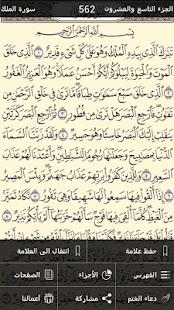 الجزء التاسع والعشرون 562 سورة الملك
بِسْمِ ٱللَّهِ ٱلرَّحْمَٰنِ ٱلرَّحِيمِ
تَبَٰرَكَ ٱلَّذِى بِيَدِهِ ٱلْمُلْكُ وَهُوَ عَلَىٰ كُلِّ شَىْءٍ قَدِيرٌ ١ ٱلَّذِى خَلَقَ
ٱلْمَوْتَ وَٱلْحَيَوٰةَ لِيَبْلُوَكُمْ أَيُّكُمْ أَحْسَنُ عَمَلًا وَهُوَ ٱلْعَزِيزُ ٱلْغَفُورُ
٢ ٱلَّذِى خَلَقَ سَبْعَ سَمَٰوَٰتٍ طِبَاقًا مَّا تَرَىٰ فِى خَلْقِ ٱلرَّحْمَٰنِ مِن
تَفَٰوُتٍ فَٱرْجِعِ ٱلْبَصَرَ هَلْ تَرَىٰ مِن فُطُورٍ ٣ ثُمَّ ٱرْجِعِ ٱلْبَصَرَ كَرَّتَيْنِ
يَنقَلِبْ إِلَيْكَ ٱلْبَصَرُ خَاسِئًا وَهُوَ حَسِيرٌ ٤ وَلَقَدْ زَيَّنَّا ٱلسَّمَآءَ
ٱلدُّنْيَا بِمَصَٰبِيحَ وَجَعَلْنَٰهَا رُجُومًا لِّلشَّيَٰطِينِ وَأَعْتَدْنَا لَهُمْ عَذَابَ
ٱلسَّعِيرِ ٥ وَلِلَّذِينَ كَفَرُوا۟ بِرَبِّهِمْ عَذَابُ جَهَنَّمَ وَبِئْسَ ٱلْمَصِيرُ ٦
إِذَآ أُلْقُوا۟ فِيهَا سَمِعُوا۟ لَهَا شَهِيقًا وَهِىَ تَفُورُ ٧ تَكَادُ تَمَيَّزُ
مِنَ ٱلْغَيْظِ كُلَّمَآ أُلْقِىَ فِيهَا فَوْجٌ سَأَلَهُمْ خَزَنَتُهَآ أَلَمْ يَأْتِكُمْ نَذِيرٌ ٨
حفظ علامة
انتقال الى العلامة
الفهرس
الأجزاء
الصفحات
دعاء الختم
مشاركة
أعمالنا